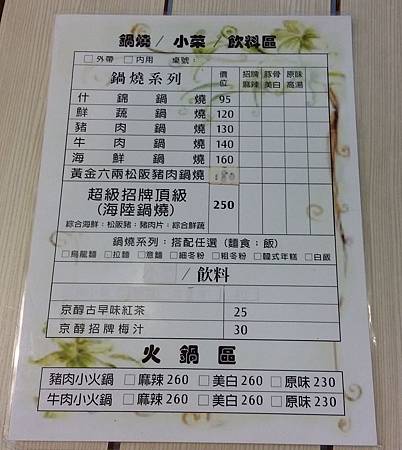 鍋燒 / 小菜 / 飲料區
□外帶 □內用 桌號：
鍋燒系列 價位 招牌麻辣 豚骨美白 原味高湯
什錦鍋燒 95
鮮蔬鍋燒 120
豬肉鍋燒 130
牛肉鍋燒 140
海鮮鍋燒 160
黃金六兩松阪豬肉鍋燒
超級招牌頂級
(海陸鍋燒) 250
綜合海鮮：松阪豬：豬肉片：綜合鮮蔬
鍋燒系列：搭配任選 (麵食：飯)
□烏龍麵 □拉麵 □意麵 □細冬粉 □粗冬粉 □韓式年糕 □白飯
/飲料
京醇古早味紅茶 25
京醇招牌梅汁 30
火鍋區
豬肉小火鍋 □麻辣260 □美白260 □原味230
牛肉小火鍋 □麻辣260 □美白260 □原味230